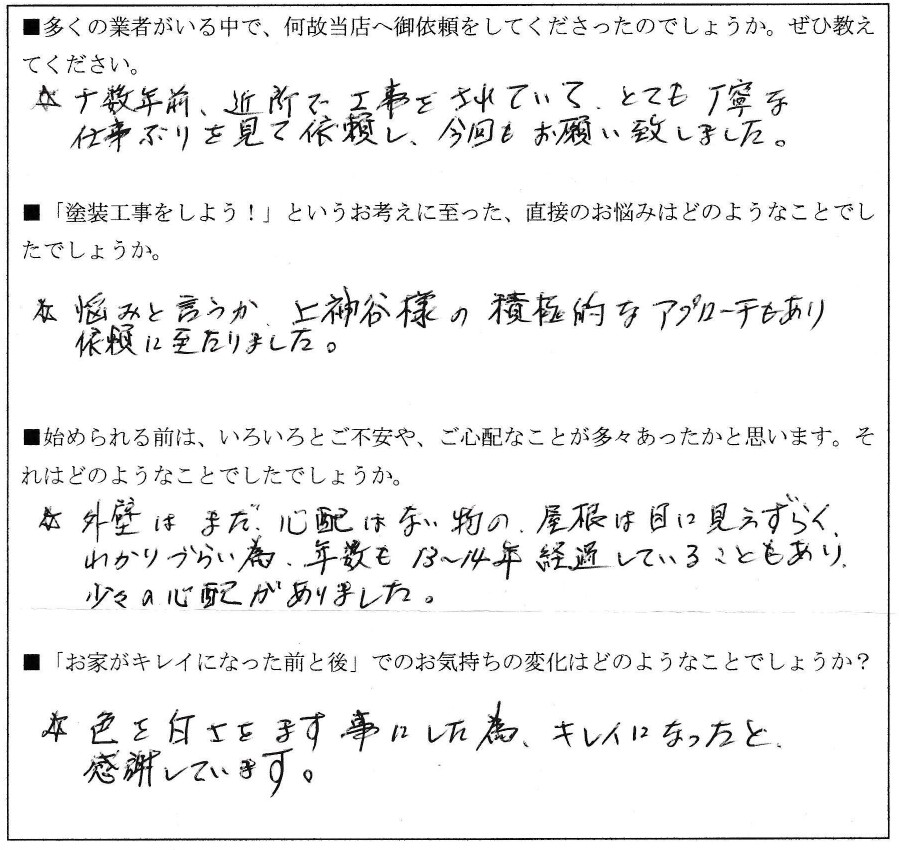 ■多くの業者がいる中で、何故当店へ御依頼をしてくださったのでしょうか。ぜひ教え
てください。
☆ 十数年前、近所で工事をされていて、とても丁寧な
仕事ぶりを見て依頼し、今回もお願い致しました。
■「塗装工事をしよう！」というお考えに至った、直接のお悩みはどのようなことでし
たでしょうか。
☆ 悩みと言うか、上神谷様の積極的なアプローチもあり
依頼に至たりました。
■始められる前は、いろいろとご不安や、ご心配なことが多々あったかと思います。そ
れはどのようなことでしたでしょうか。
☆ 外壁はまだ、心配はない物の、屋根は目に見えずらく、
わかりづらい為、年数も13〜14年経過していることもあり、
少々の心配がありました。
■「お家がキレイになった前と後」でのお気持ちの変化はどのようなことでしょうか？
☆ 色を白さをます事にした為、キレイになったと、
感謝しています。